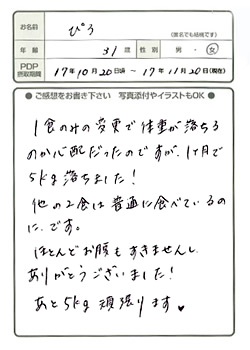 お名前 ぴろ
(匿名でも結構です)
年齢 31才 性別 男・女
PDP摂取期間 17年10月20日頃 ～ 17年11月20日(現在)
● ご感想をお書き下さい 写真添付やイラストもOK ●
1食のみの変更で体重が落ちる
のか心配だったのですが、1ヶ月で
5kg落ちました!
他の2食は普通に食べているの
に、です。
ほとんどお腹もすきませんし、
ありがとうございました!
あと5kg頑張ります♥